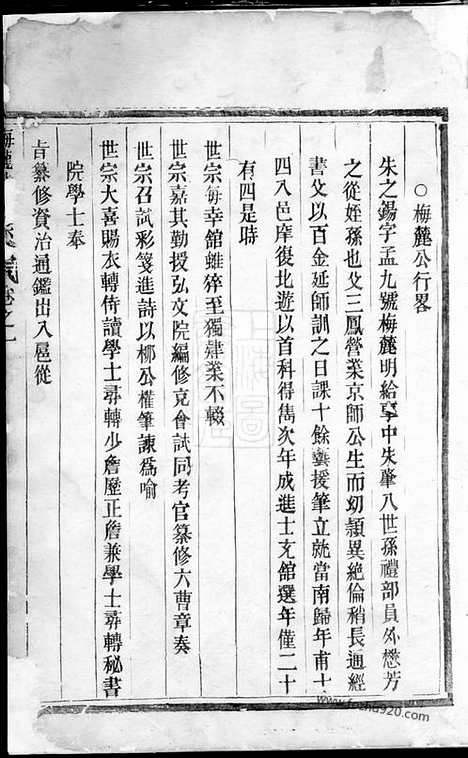 ○梅麓公行畧
朱之錫字孟九號梅麓明給事中朱肇八世孫禮部員外懋芳
之從姪孫也父三鳳營業京師公生而幼穎異絶倫稍長通經
書父以百金延師訓之日課十餘藝援筆立就當南歸年甫十
四入邑庠復北遊以首科得雋次年成進士充館選年僅二十
有四是時
世宗每幸館雖猝至獨肄業不輟
世宗嘉其勤授弘文院編修充會試同考官纂修六曹章奏
世宗召試彩箋進詩以柳公權筆諫爲喻
世宗大喜賜衣轉侍讀學士尋轉少詹歷正詹兼學士尋轉秘書
院學士奉
旨纂修資治通鑑出入扈從
卷之一
www.fozhu920.com